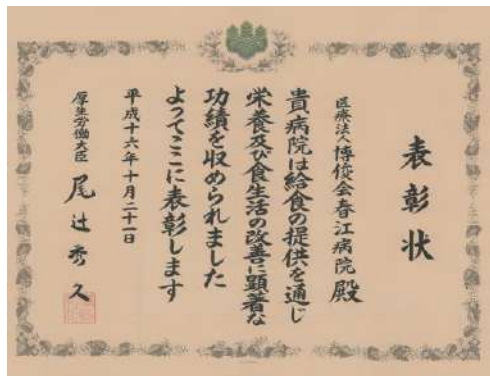 表彰状
医療法人博俊会春江病院殿
貴病院は給食の提供を通じ
栄養及び食生活の改善に顕著な
功績を収められました
よってここに表彰します
平成十六年十月二十一日
厚生労働大臣 尾辻秀久